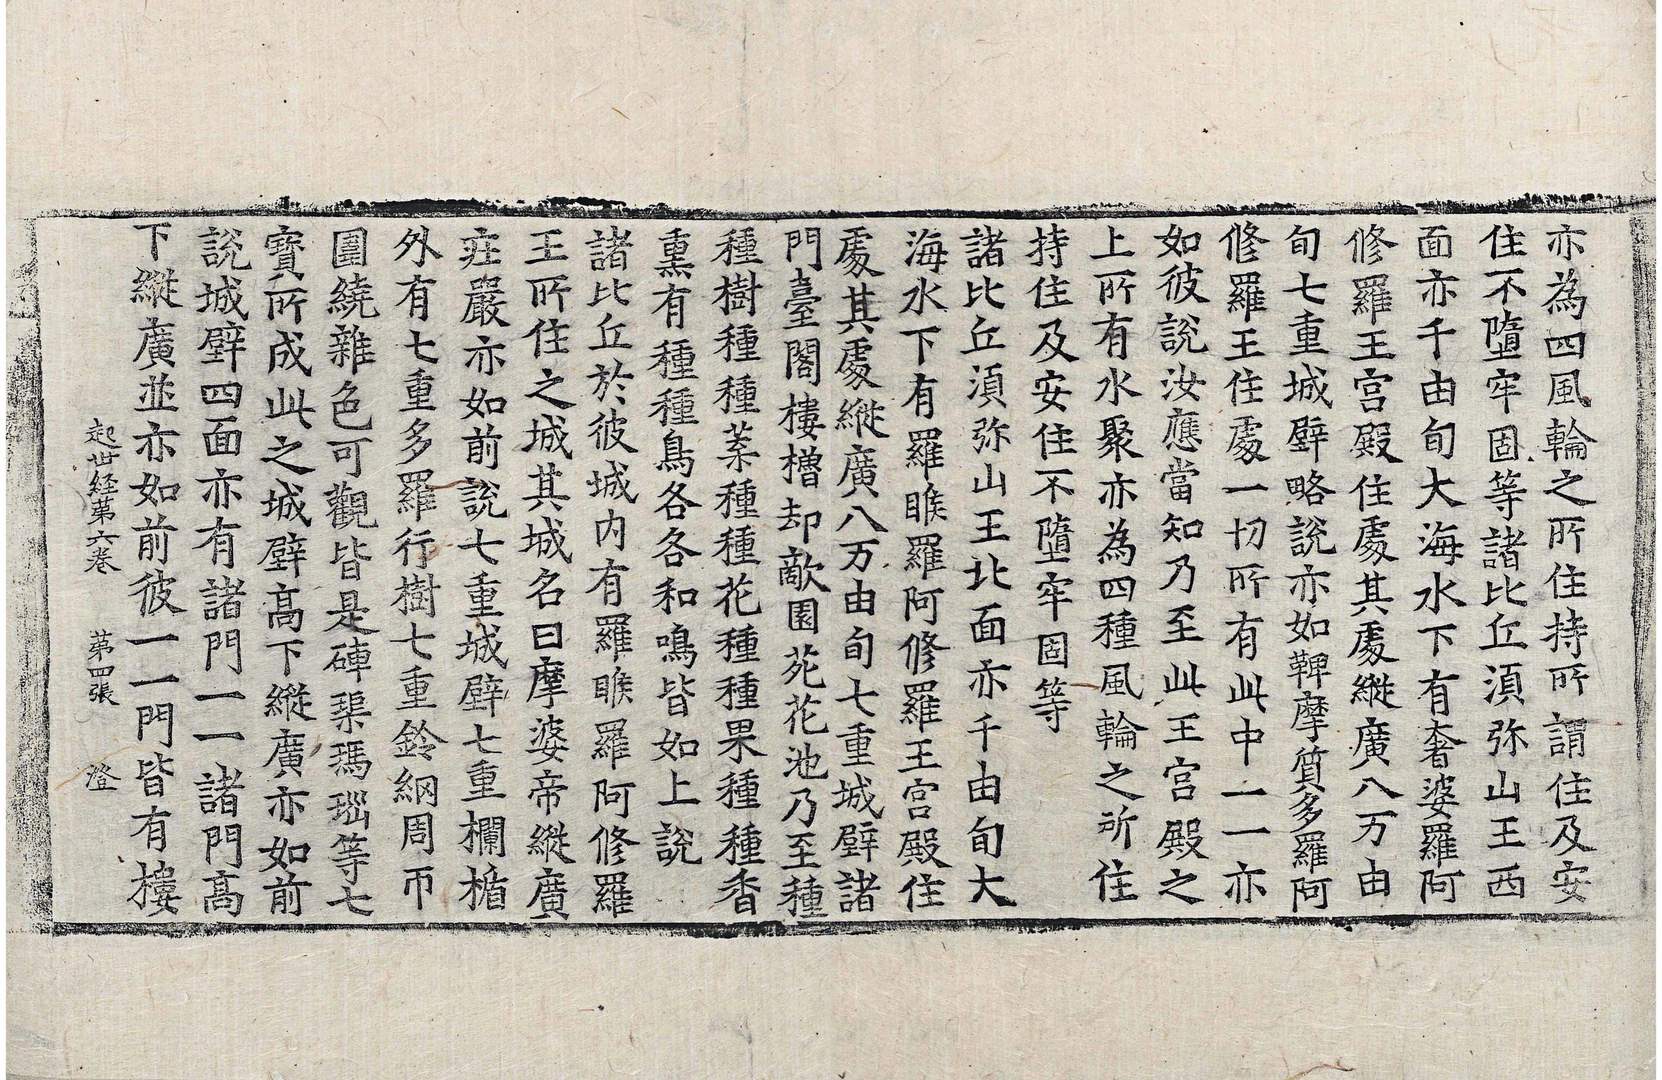 亦為四風輪之所住持所謂住及安
住不墮牢固等諸比丘湏弥山王西
面亦千由旬大海水下有奢婆羅阿
修羅王宫殿住處其處縱廣八万由
旬七重城壁略說亦如鞞摩質多羅阿
修羅王住處一切所有此中一一亦
如彼說汝應當知乃至此王宫殿之
上所有水聚亦為四種風輪之所住
持住及安住不墮牢固等
諸比丘湏弥山王北面亦千由旬大
海水下有羅睺羅阿修羅王宫殿住
處其處縱廣八万由旬七重城壁諸
門臺閣樓櫓却敵園苑花池乃至種
種樹種種葉種種花種種果種種香
熏有種種鳥各各和鳴皆如上說
諸比丘於彼城内有羅睺羅阿修羅
王所住之城其城名曰摩婆帝縱廣
莊嚴亦如前說七重城壁七重欄楯
外有七重多羅行樹七重鈴網周帀
圍繞雜色可觀皆是硨磲瑪瑙等七
寶所成此之城壁高下縱廣亦如前
說城壁四面亦有諸門一一諸門高
下縱廣並亦如前彼一一門皆有樓
起世經第六卷 第四張 澄